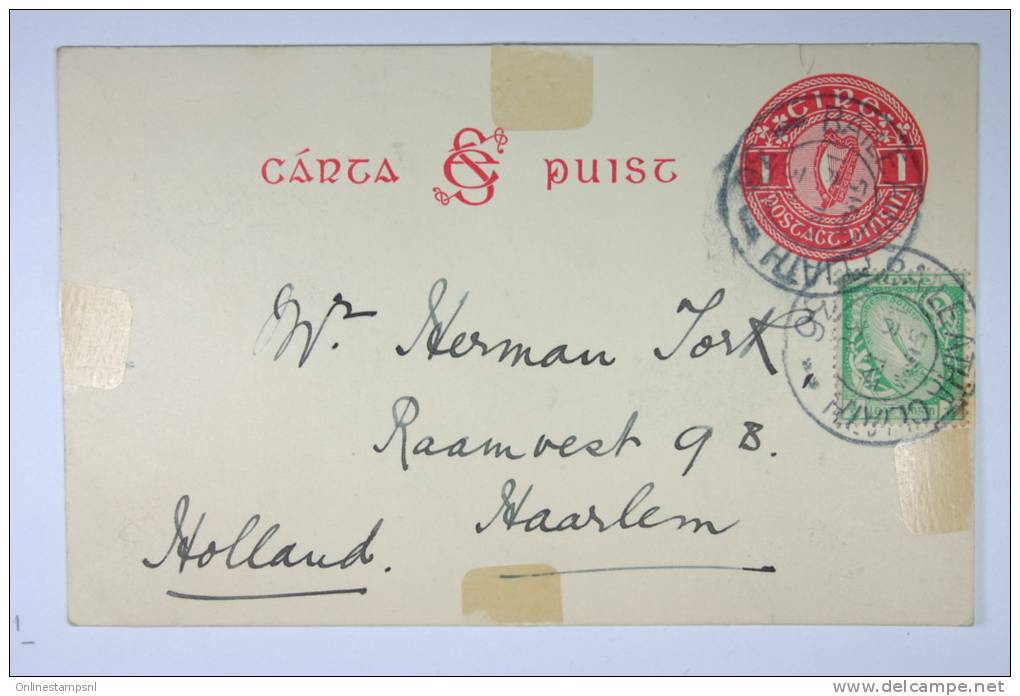 CÁRTA SÉ PUIST
EIRE
1 1
POSTAGE PINGIN
BAILE
ATH CLIATH
Mr Herman Tork
Raamvest 9 B.
Haarlem
Holland.
Onlinestampsnl
www.delcampe.net